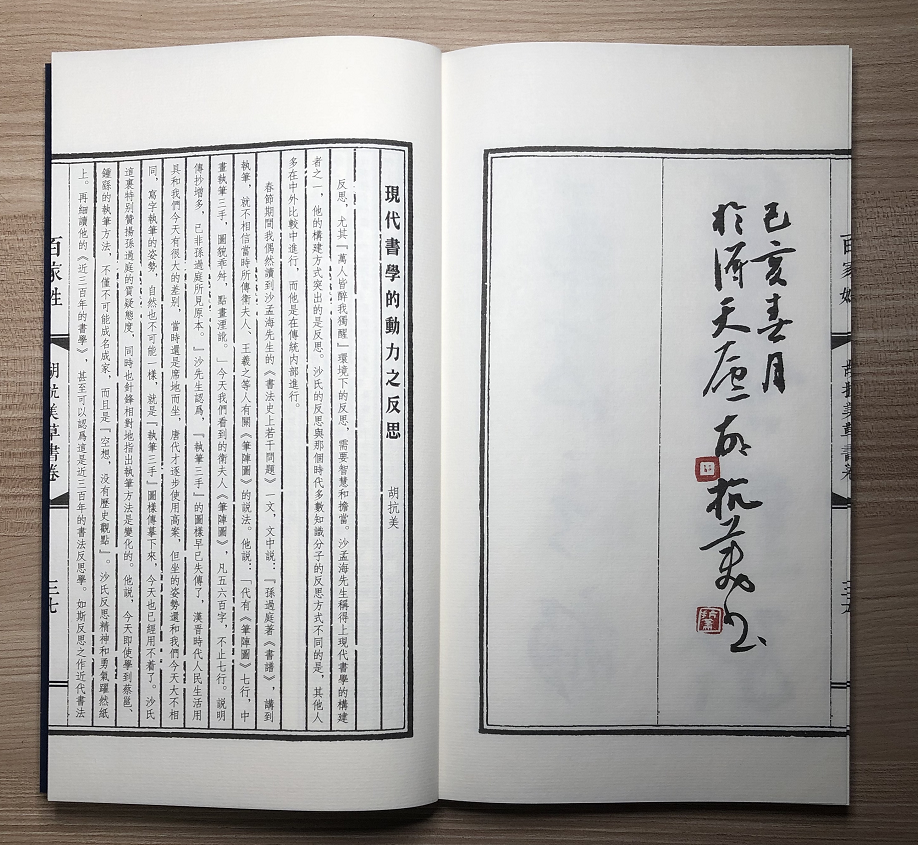 百家姓
胡抗美草書卷
己亥春月
於天庐胡抗美书
現代書學的動力之反思
胡抗美
反思，尤其『萬人皆醉我獨醒』環境下的反思，需要智慧和擔當。沙孟海先生稱得上現代書學的構建
者之一，他的構建方式突出的是反思。沙氏的反思與那個時代多數知識分子的反思方式不同的是，其他人
多在中外比較中進行，而他是在傳統內部進行。
春節期間我偶然讀到沙孟海先生的《書法史上若干問題》一文，文中說：『孫過庭著《書譜》，講到
執筆，就不相信當時所傳衛夫人、王羲之等人有關《筆陣圖》的說法。他說：「代有《筆陣圖》七行，中
畫執筆三手，圖貌乖舛，點畫湮訛。」今天我們看到的衛夫人《筆陣圖》，凡五六百字，不止七行。說明
傳抄增多，已非孫過庭所見原本。』沙先生認爲，『執筆三手』的圖樣早已失傳了，漢晉時代人民生活用
具和我們今天有很大的差別，當時還是席地而坐，唐代才逐步使用高案，但坐的姿勢還和我們今天大不相
同，寫字執筆的姿勢，自然也不可能一樣，就是『執筆三手』圖樣傳摹下來，今天也已經用不着了。沙氏
這裏特別贊揚孫過庭的質疑態度，同時也針鋒相對地指出執筆方法是變化的。他說，今天即使學到蔡邕、
鍾繇的執筆方法，不僅不可能成名成家，而且是『空想，没有歷史觀點』。沙氏反思精神和勇氣躍然紙
上。再細讀他的《近三百年的書學》，甚至可以認爲這是近三百年的書法反思學。如斯反思之作近代書法
百家姓
胡抗美草書卷
三七